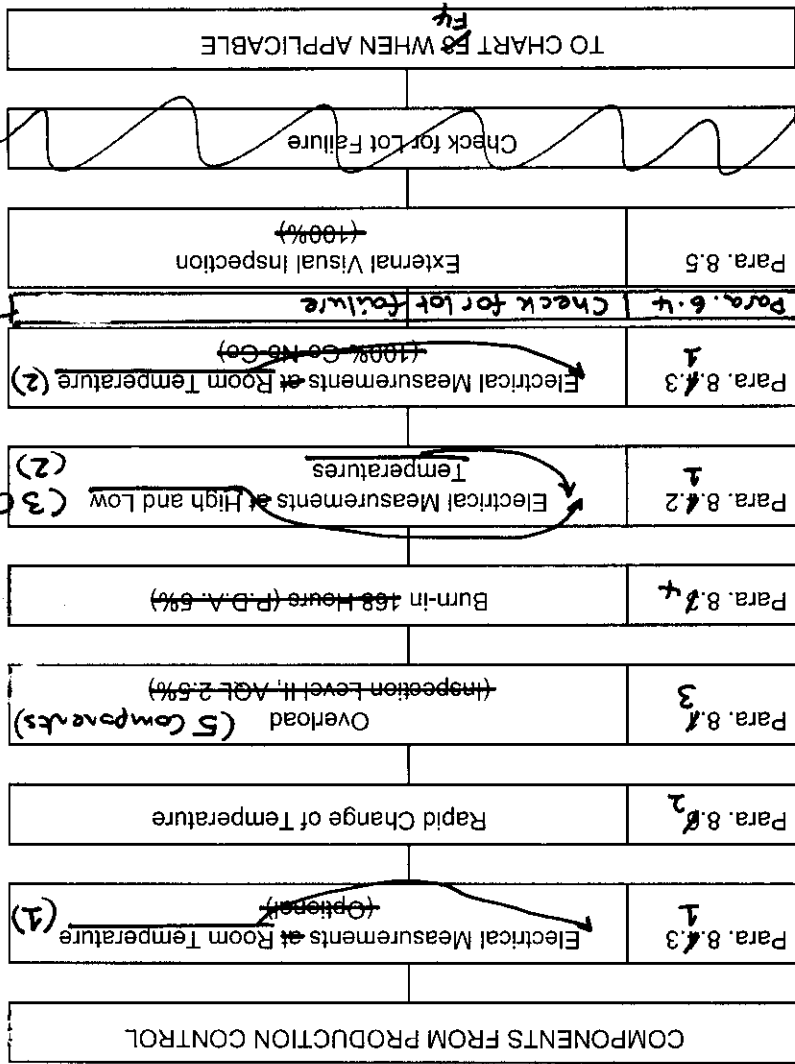 COMPONENTS FROM PRODUCTION CONTROL
Para. 8.3 Electrical Measurements at Room Temperature (1)
1 (Optional)
Para. 8. Rapid Change of Temperature
2
Para. 8. Overload (5 Components)
3 (Inspection Level II, AQL 2.5%)
Para. 8. 4 Burn-in 168 Hours (P.D.A. 5%)
Para. 8.2 Electrical Measurements at High and Low (3)
1 Temperatures (2)
Para. 8.3 Electrical Measurements at Room Temperature (2)
1 (100% Go-No-Go)
Para. 6.4 Check for lot failure
Para. 8.5 External Visual Inspection
(100%)
Check for Lot Failure
TO CHART F4 WHEN APPLICABLE